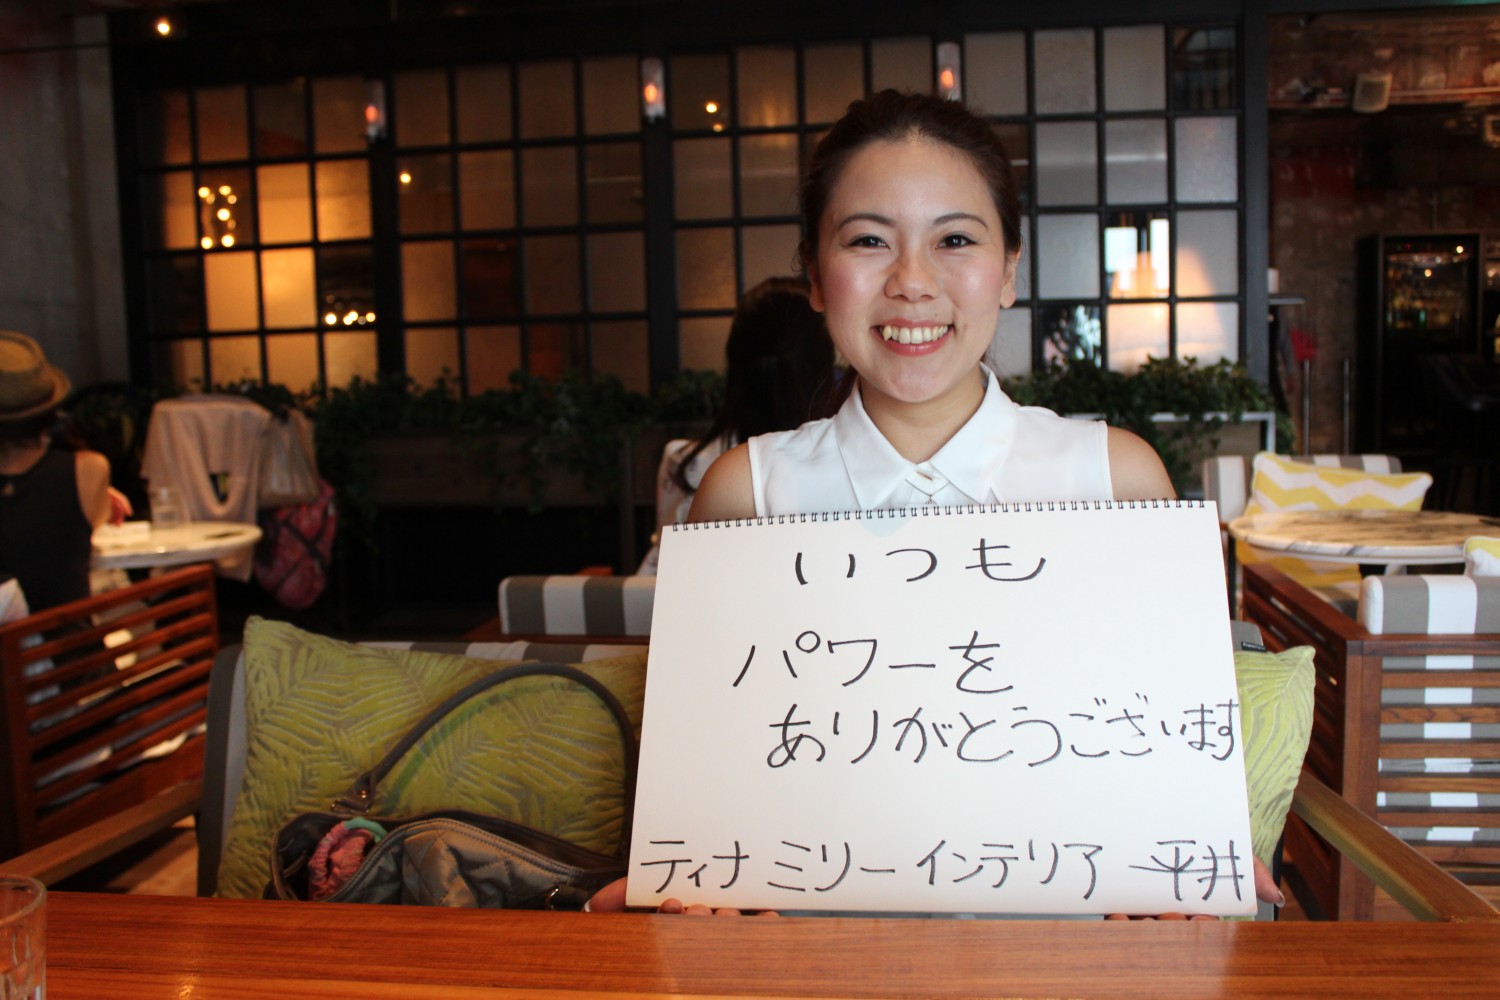 いつも
パワーを
ありがとうございます
ティナ ミリー インテリア 平井